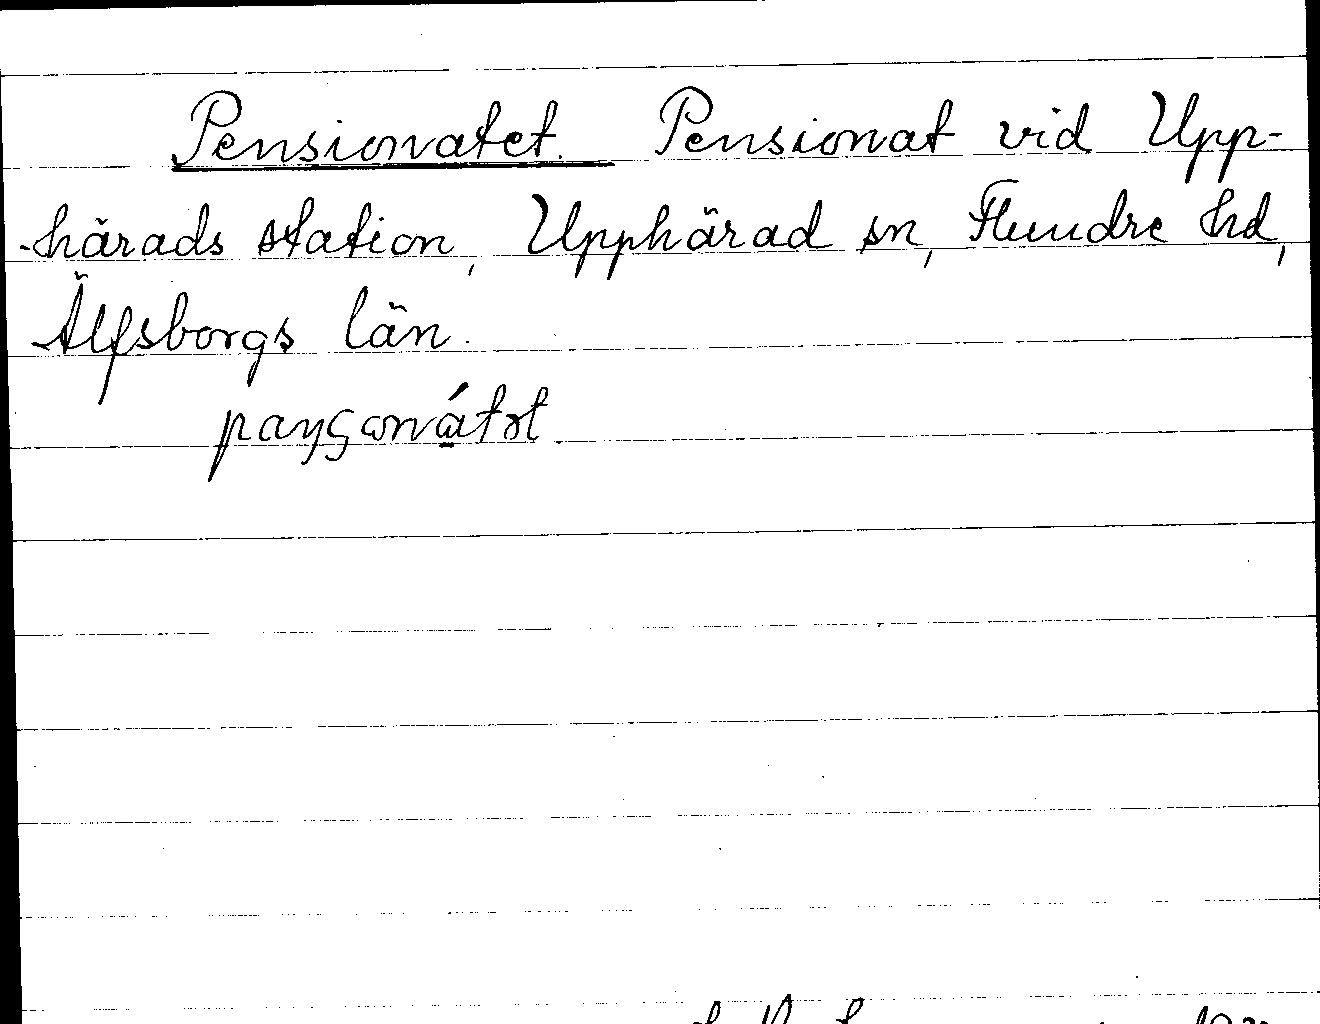 Pensionatet. Pensionat vid Upp-
-härads station, Upphärad sn, Flundre hd,
Älfsborgs län.